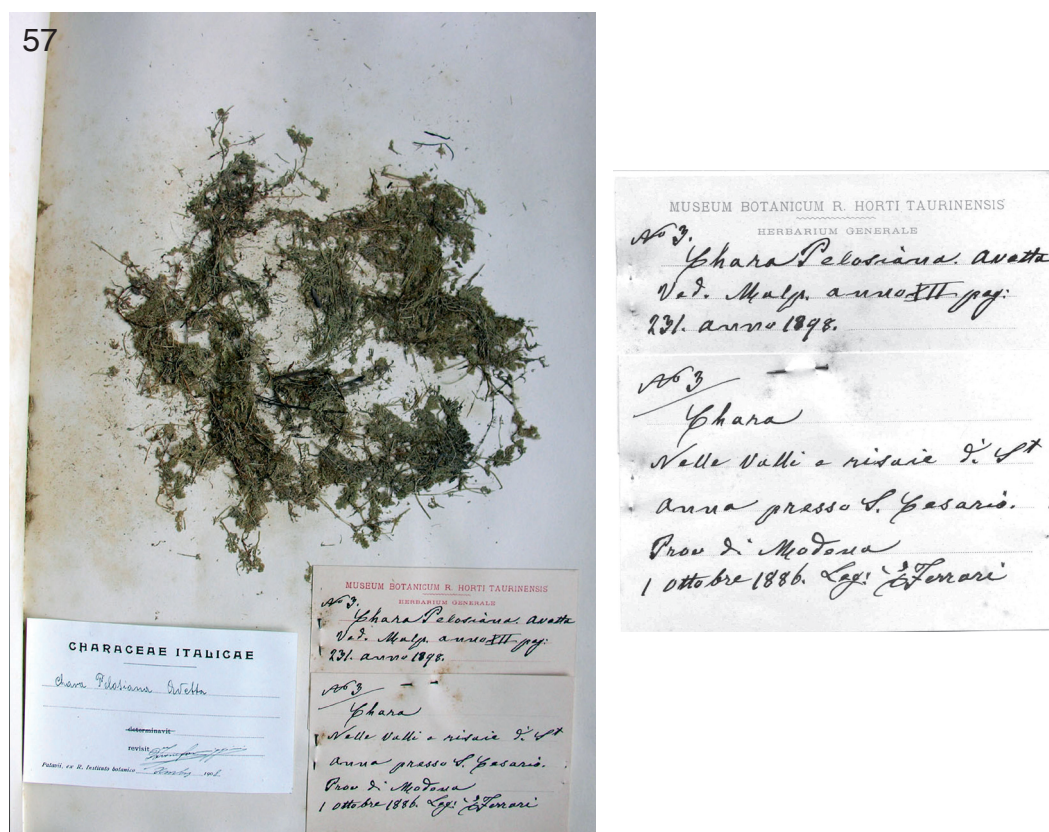 57
CHARACEAE ITALICAE
Chara Pelosiana Avetta
determinavit
revisit
Patavii, ex R. Instituto botanico 190
MUSEUM BOTANICUM R. HORTI TAURINENSIS
HERBARIUM GENERALE
No 3.
Chara Pelosiana. Avetta
Ved. Malp. anno XII pag:
231. anno 1898.
No 3
Chara
Nelle Valli e risaie di St
Anna presso S. Cesario.
Prov di Modena
1 Ottobre 1886. Leg: Ferrari
MUSEUM BOTANICUM R. HORTI TAURINENSIS
HERBARIUM GENERALE
No 3.
Chara Pelosiana. Avetta
Ved. Malp. anno XII pag:
231. anno 1898.
No 3
Chara
Nelle Valli e risaie di St
Anna presso S. Cesario.
Prov di Modena
1 Ottobre 1886. Leg: Ferrari